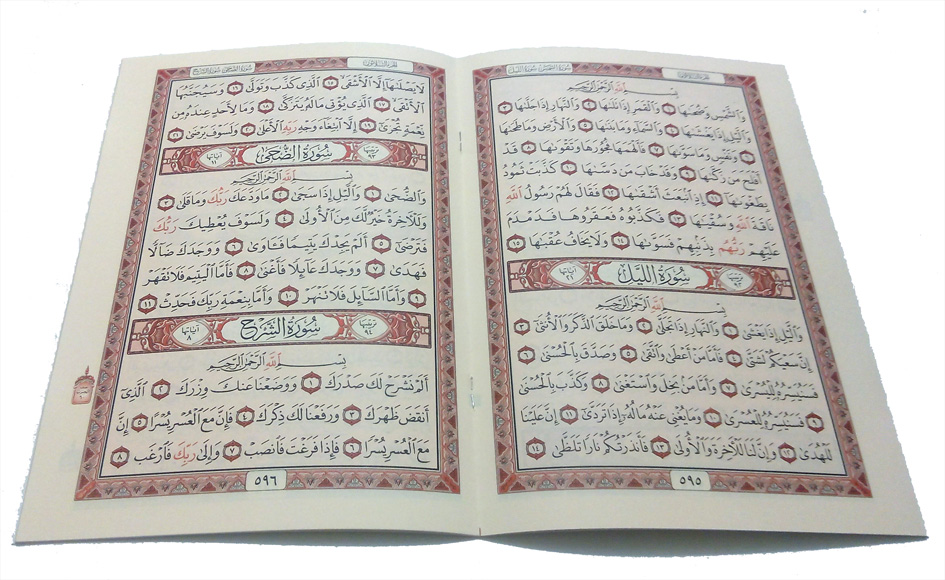 سورة الشمس سورة الليل
الجزء الثلاثون
بسم الله الرحمن الرحيم
وَالشَّمْسِ وَضُحَىٰهَا ١ وَالْقَمَرِ إِذَا تَلَىٰهَا ٢ وَالنَّهَارِ إِذَا جَلَّىٰهَا ٣
وَالَّيْلِ إِذَا يَغْشَىٰهَا ٤ وَالسَّمَاءِ وَمَا بَنَىٰهَا ٥ وَالْأَرْضِ وَمَا طَحَىٰهَا
٦ وَنَفْسٍ وَمَا سَوَّىٰهَا ٧ فَأَلْهَمَهَا فُجُورَهَا وَتَقْوَىٰهَا ٨ قَدْ
أَفْلَحَ مَن زَكَّىٰهَا ٩ وَقَدْ خَابَ مَن دَسَّىٰهَا ١٠ كَذَّبَتْ ثَمُودُ
بِطَغْوَىٰهَا ١١ إِذِ انبَعَثَ أَشْقَىٰهَا ١٢ فَقَالَ لَهُمْ رَسُولُ اللَّهِ
نَاقَةَ اللَّهِ وَسُقْيَىٰهَا ١٣ فَكَذَّبُوهُ فَعَقَرُوهَا فَدَمْدَمَ
عَلَيْهِمْ رَبُّهُم بِذَنۢبِهِمْ فَسَوَّىٰهَا ١٤ وَلَا يَخَافُ عُقْبَىٰهَا ١٥
ترتيبها ٩٢ سُورَةُ اللَّيْلِ آياتها ٢١
بسم الله الرحمن الرحيم
وَالَّيْلِ إِذَا يَغْشَىٰ ١ وَالنَّهَارِ إِذَا تَجَلَّىٰ ٢ وَمَا خَلَقَ الذَّكَرَ وَالْأُنثَىٰ ٣
إِنَّ سَعْيَكُمْ لَشَتَّىٰ ٤ فَأَمَّا مَنْ أَعْطَىٰ وَاتَّقَىٰ ٥ وَصَدَّقَ بِالْحُسْنَىٰ ٦
فَسَنُيَسِّرُهُ لِلْيُسْرَىٰ ٧ وَأَمَّا مَنۢ بَخِلَ وَاسْتَغْنَىٰ ٨ وَكَذَّبَ بِالْحُسْنَىٰ
٩ فَسَنُيَسِّرُهُ لِلْعُسْرَىٰ ١٠ وَمَا يُغْنِي عَنْهُ مَالُهُ إِذَا تَرَدَّىٰ ١١ إِنَّ عَلَيْنَا
لَلْهُدَىٰ ١٢ وَإِنَّ لَنَا لَلْآخِرَةَ وَالْأُولَىٰ ١٣ فَأَنذَرْتُكُمْ نَارًا تَلَظَّىٰ ١٤
٥٩٥
سورة الضحى سورة الشرح
الجزء الثلاثون
لَا يَصْلَىٰهَا إِلَّا الْأَشْقَى ١٥ الَّذِي كَذَّبَ وَتَوَلَّىٰ ١٦ وَسَيُجَنَّبُهَا
الْأَتْقَى ١٧ الَّذِي يُؤْتِي مَالَهُ يَتَزَكَّىٰ ١٨ وَمَا لِأَحَدٍ عِندَهُ مِن
نِّعْمَةٍ تُجْزَىٰ ١٩ إِلَّا ابْتِغَاءَ وَجْهِ رَبِّهِ الْأَعْلَىٰ ٢٠ وَلَسَوْفَ يَرْضَىٰ ٢١
ترتيبها ٩٣ سُورَةُ الضُّحَىٰ آياتها ١١
بسم الله الرحمن الرحيم
وَالضُّحَىٰ ١ وَالَّيْلِ إِذَا سَجَىٰ ٢ مَا وَدَّعَكَ رَبُّكَ وَمَا قَلَىٰ ٣
وَلَلْآخِرَةُ خَيْرٌ لَّكَ مِنَ الْأُولَىٰ ٤ وَلَسَوْفَ يُعْطِيكَ رَبُّكَ
فَتَرْضَىٰ ٥ أَلَمْ يَجِدْكَ يَتِيمًا فَـَٔاوَىٰ ٦ وَوَجَدَكَ ضَالًّا
فَهَدَىٰ ٧ وَوَجَدَكَ عَائِلًا فَأَغْنَىٰ ٨ فَأَمَّا الْيَتِيمَ فَلَا تَقْهَرْ
٩ وَأَمَّا السَّائِلَ فَلَا تَنْهَرْ ١٠ وَأَمَّا بِنِعْمَةِ رَبِّكَ فَحَدِّثْ ١١
ترتيبها ٩٤ سُورَةُ الشَّرْحِ آياتها ٨
بسم الله الرحمن الرحيم
أَلَمْ نَشْرَحْ لَكَ صَدْرَكَ ١ وَوَضَعْنَا عَنكَ وِزْرَكَ ٢ الَّذِي
أَنقَضَ ظَهْرَكَ ٣ وَرَفَعْنَا لَكَ ذِكْرَكَ ٤ فَإِنَّ مَعَ الْعُسْرِ يُسْرًا ٥ إِنَّ
مَعَ الْعُسْرِ يُسْرًا ٦ فَإِذَا فَرَغْتَ فَانصَبْ ٧ وَإِلَىٰ رَبِّكَ فَارْغَب ٨
٥٩٦